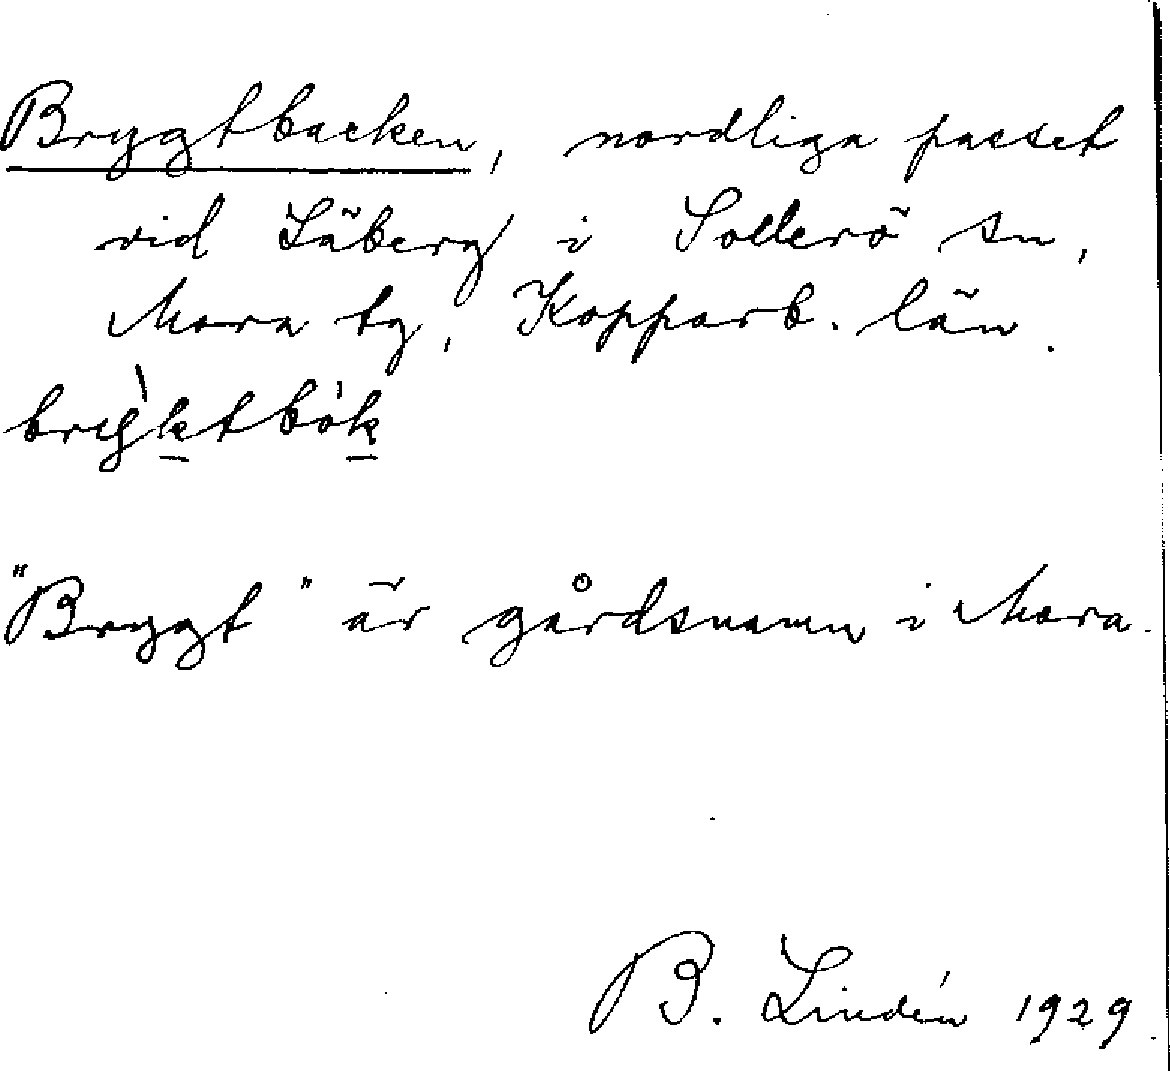 Brygtbacken, nordliga passet
vid Säberg i Sollerö sn,
Mora tg, Kopparb. län.
"Brygt" är gårdsnamn i Mora.
B. Lindén 1929